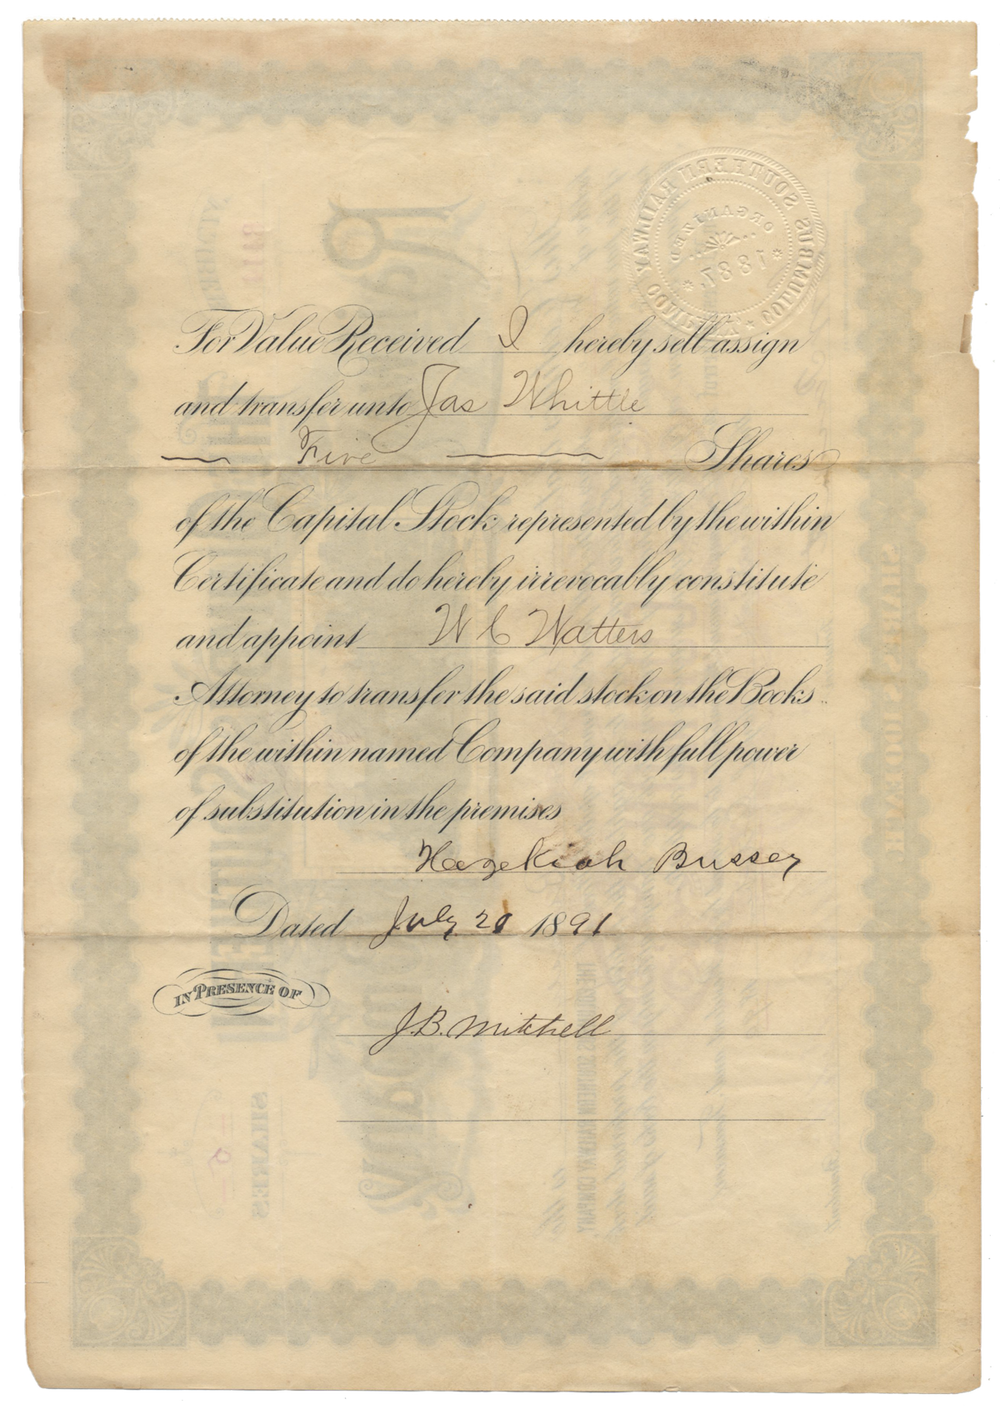 COLUMBUS SOUTHERN RAILWAY COMPANY
ORGANIZED
1887
For Value Received I hereby sell assign
and transfer unto Jas Whittle
Five Shares
of the Capital Stock represented by the within
Certificate and do hereby irrevocably constitute
and appoint W C Watters
Attorney to transfer the said stock on the Books
of the within named Company with full power
of substitution in the premises
Hezekiah Bussey
Dated July 20 1891
IN PRESENCE OF
J.B. Mitchell
SHARES